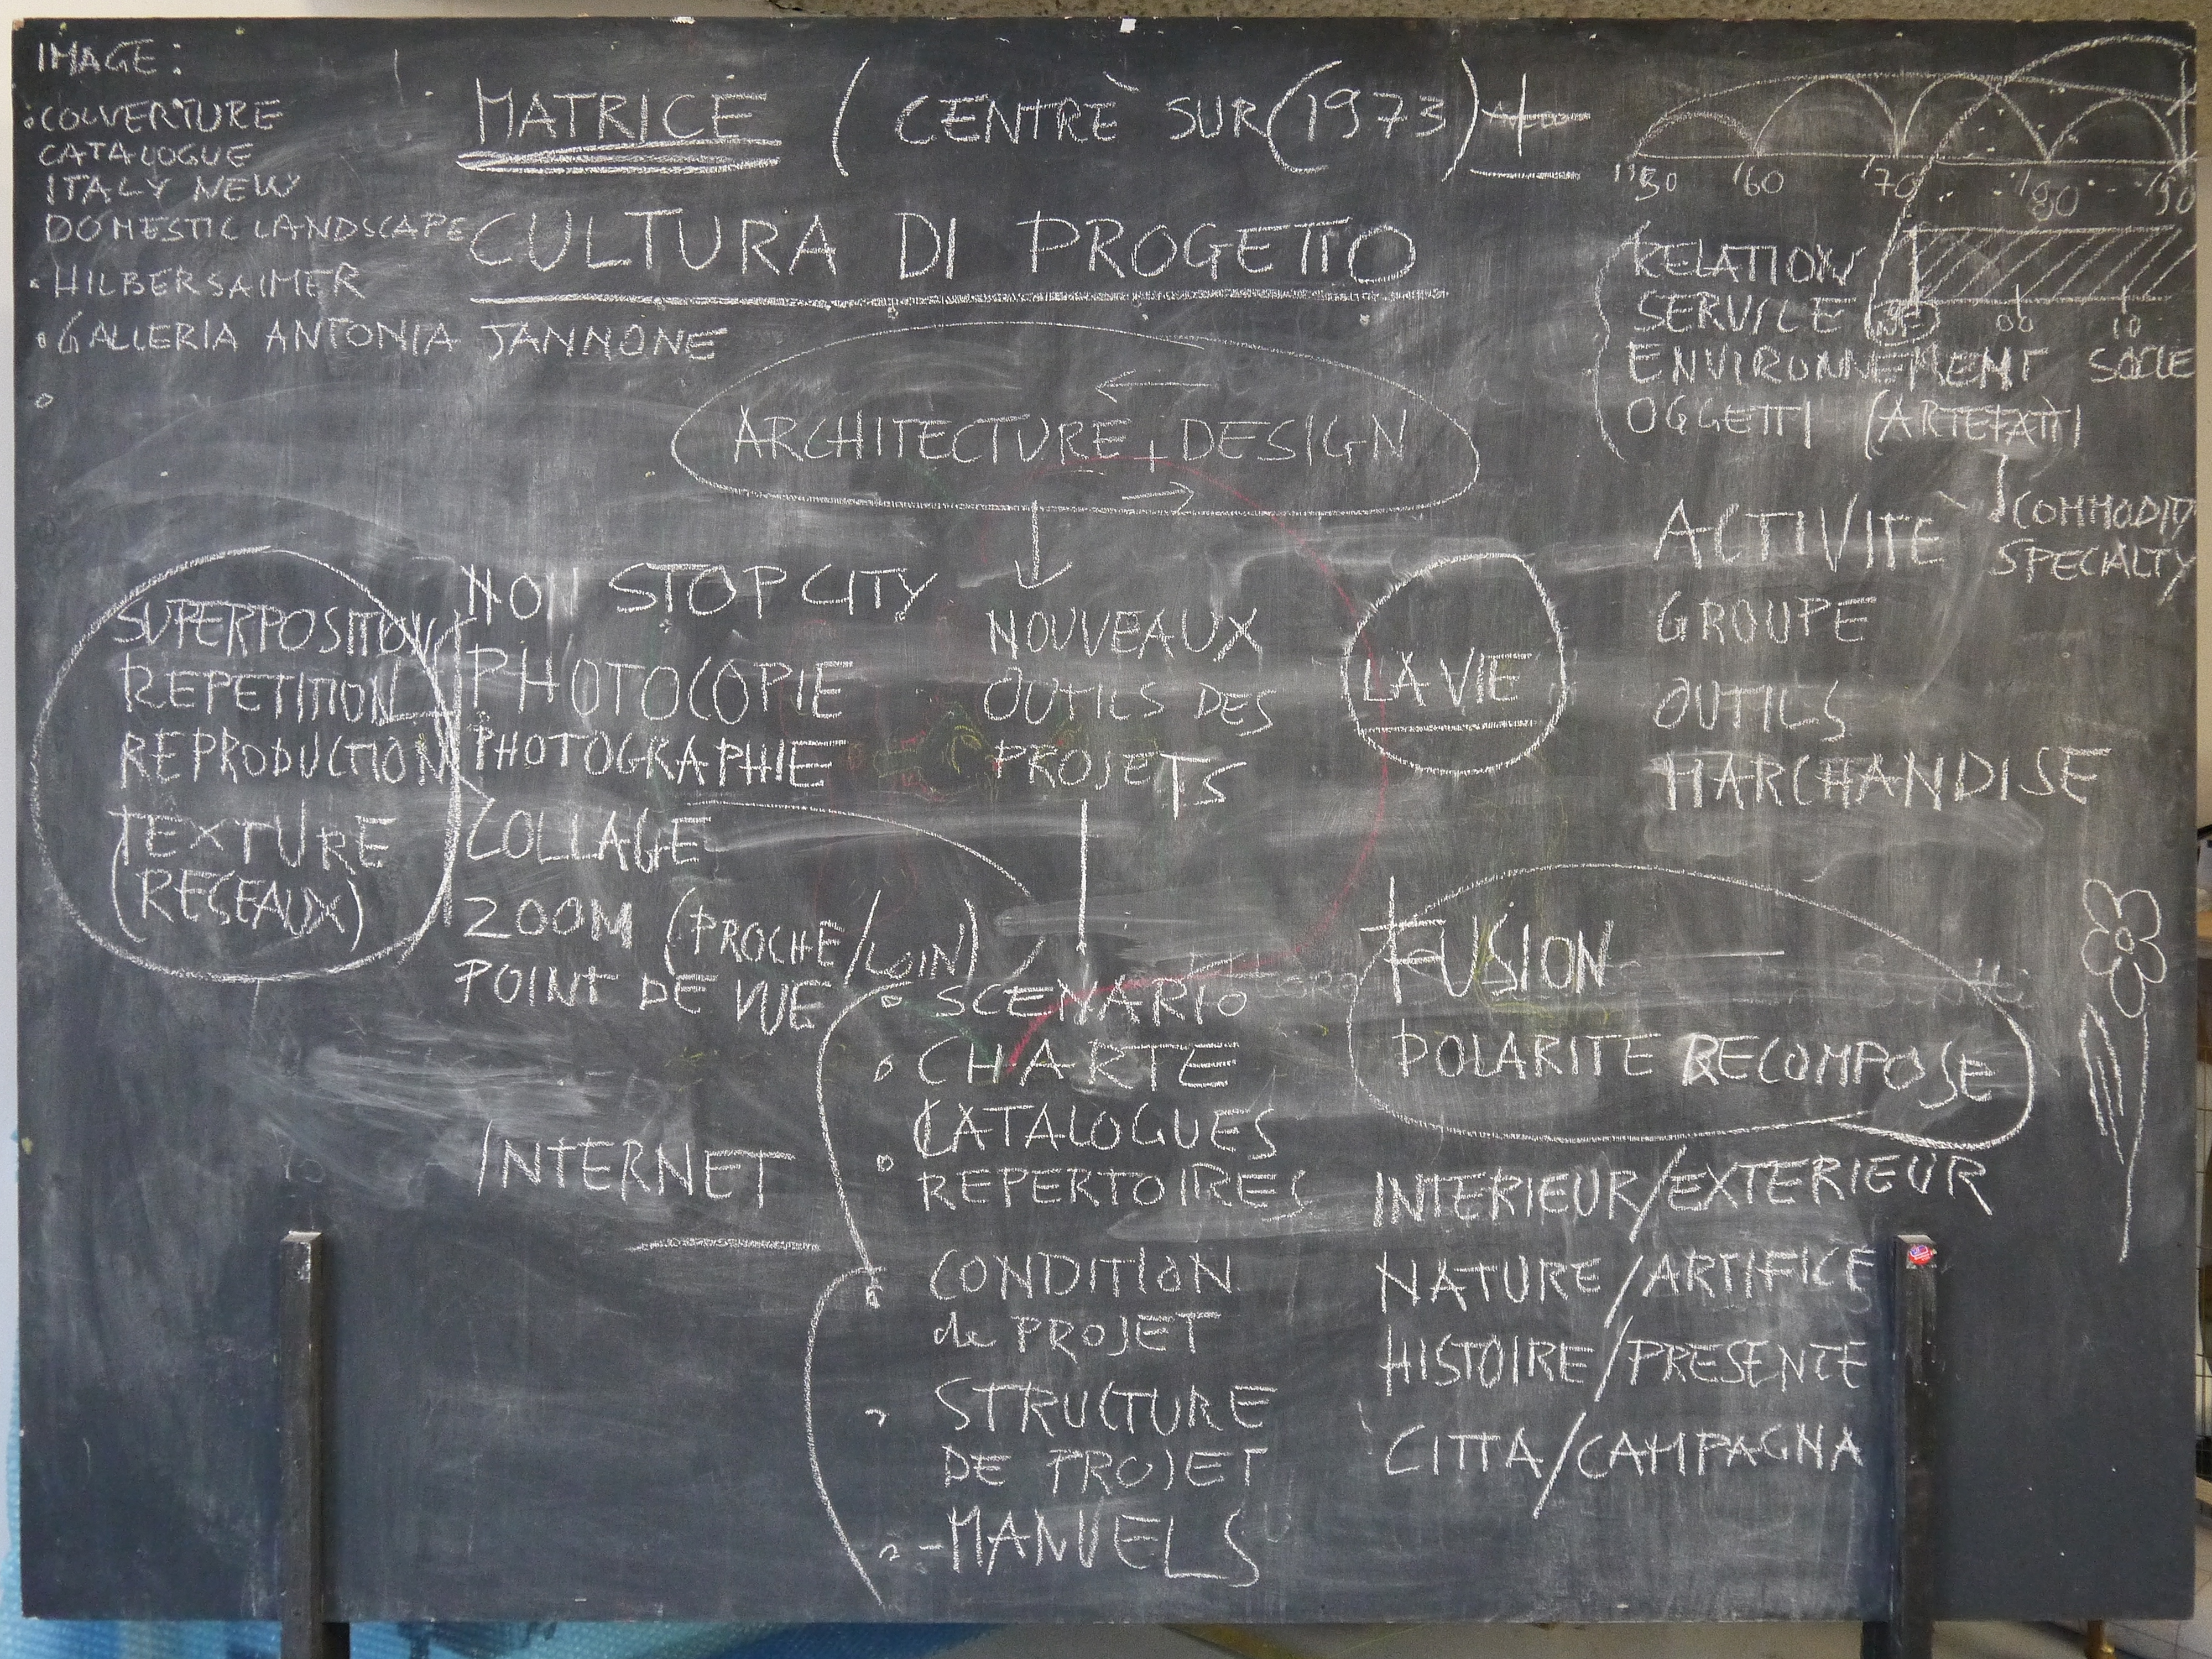 IMAGE:
COUVERTURE
CATALOGUE
ITALY NEW
DOMESTIC LANDSCAPE
HILBERSAIMER
GALLERIA ANTONIA JANNONE
MATRICE (CENTRE SUR (1973)
CULTURA DI PROGETTO
ARCHITECTURE + DESIGN
'60 '70 '80 '90
RELATION
SERVICE
00 10
ENVIRONNEMENT SOCLE
OGGETTI (ARTEFATTI
COMMODITY
SPECIALTY
ACTIVITE
GROUPE
OUTILS
MARCHANDISE
SUPERPOSITION
REPETITION
REPRODUCTION
TEXTURE
(RESEAUX)
NON STOP CITY
PHOTOCOPIE
PHOTOGRAPHIE
COLLAGE
ZOOM (PROCHE/LOIN)
POINT DE VUE
INTERNET
NOUVEAUX
OUTILS DES
PROJETS
LA VIE
SCENARIO
CHARTE
CATALOGUES
REPERTOIRES
CONDITION
de PROJET
STRUCTURE
DE PROJET
-MANUELS
FUSION
POLARITE RECOMPOSE
INTERIEUR/EXTERIEUR
NATURE/ARTIFICE
HISTOIRE/PRESENTE
CITTA/CAMPAGNA